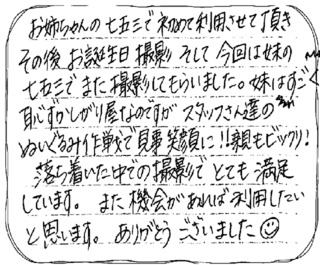 お姉ちゃんの七五三で初めて利用させて頂き
その後お誕生日撮影 そして今回は妹の
七五三でまた撮影してもらいました。妹はすごく
恥ずかしがり屋なのですが スタッフさん達の
ぬいぐるみ作戦で見事笑顔に!!親もビックリ!
落ち着いた中での撮影で とても満足
しています。また機会があれば利用したい
と思います。ありがとうございました